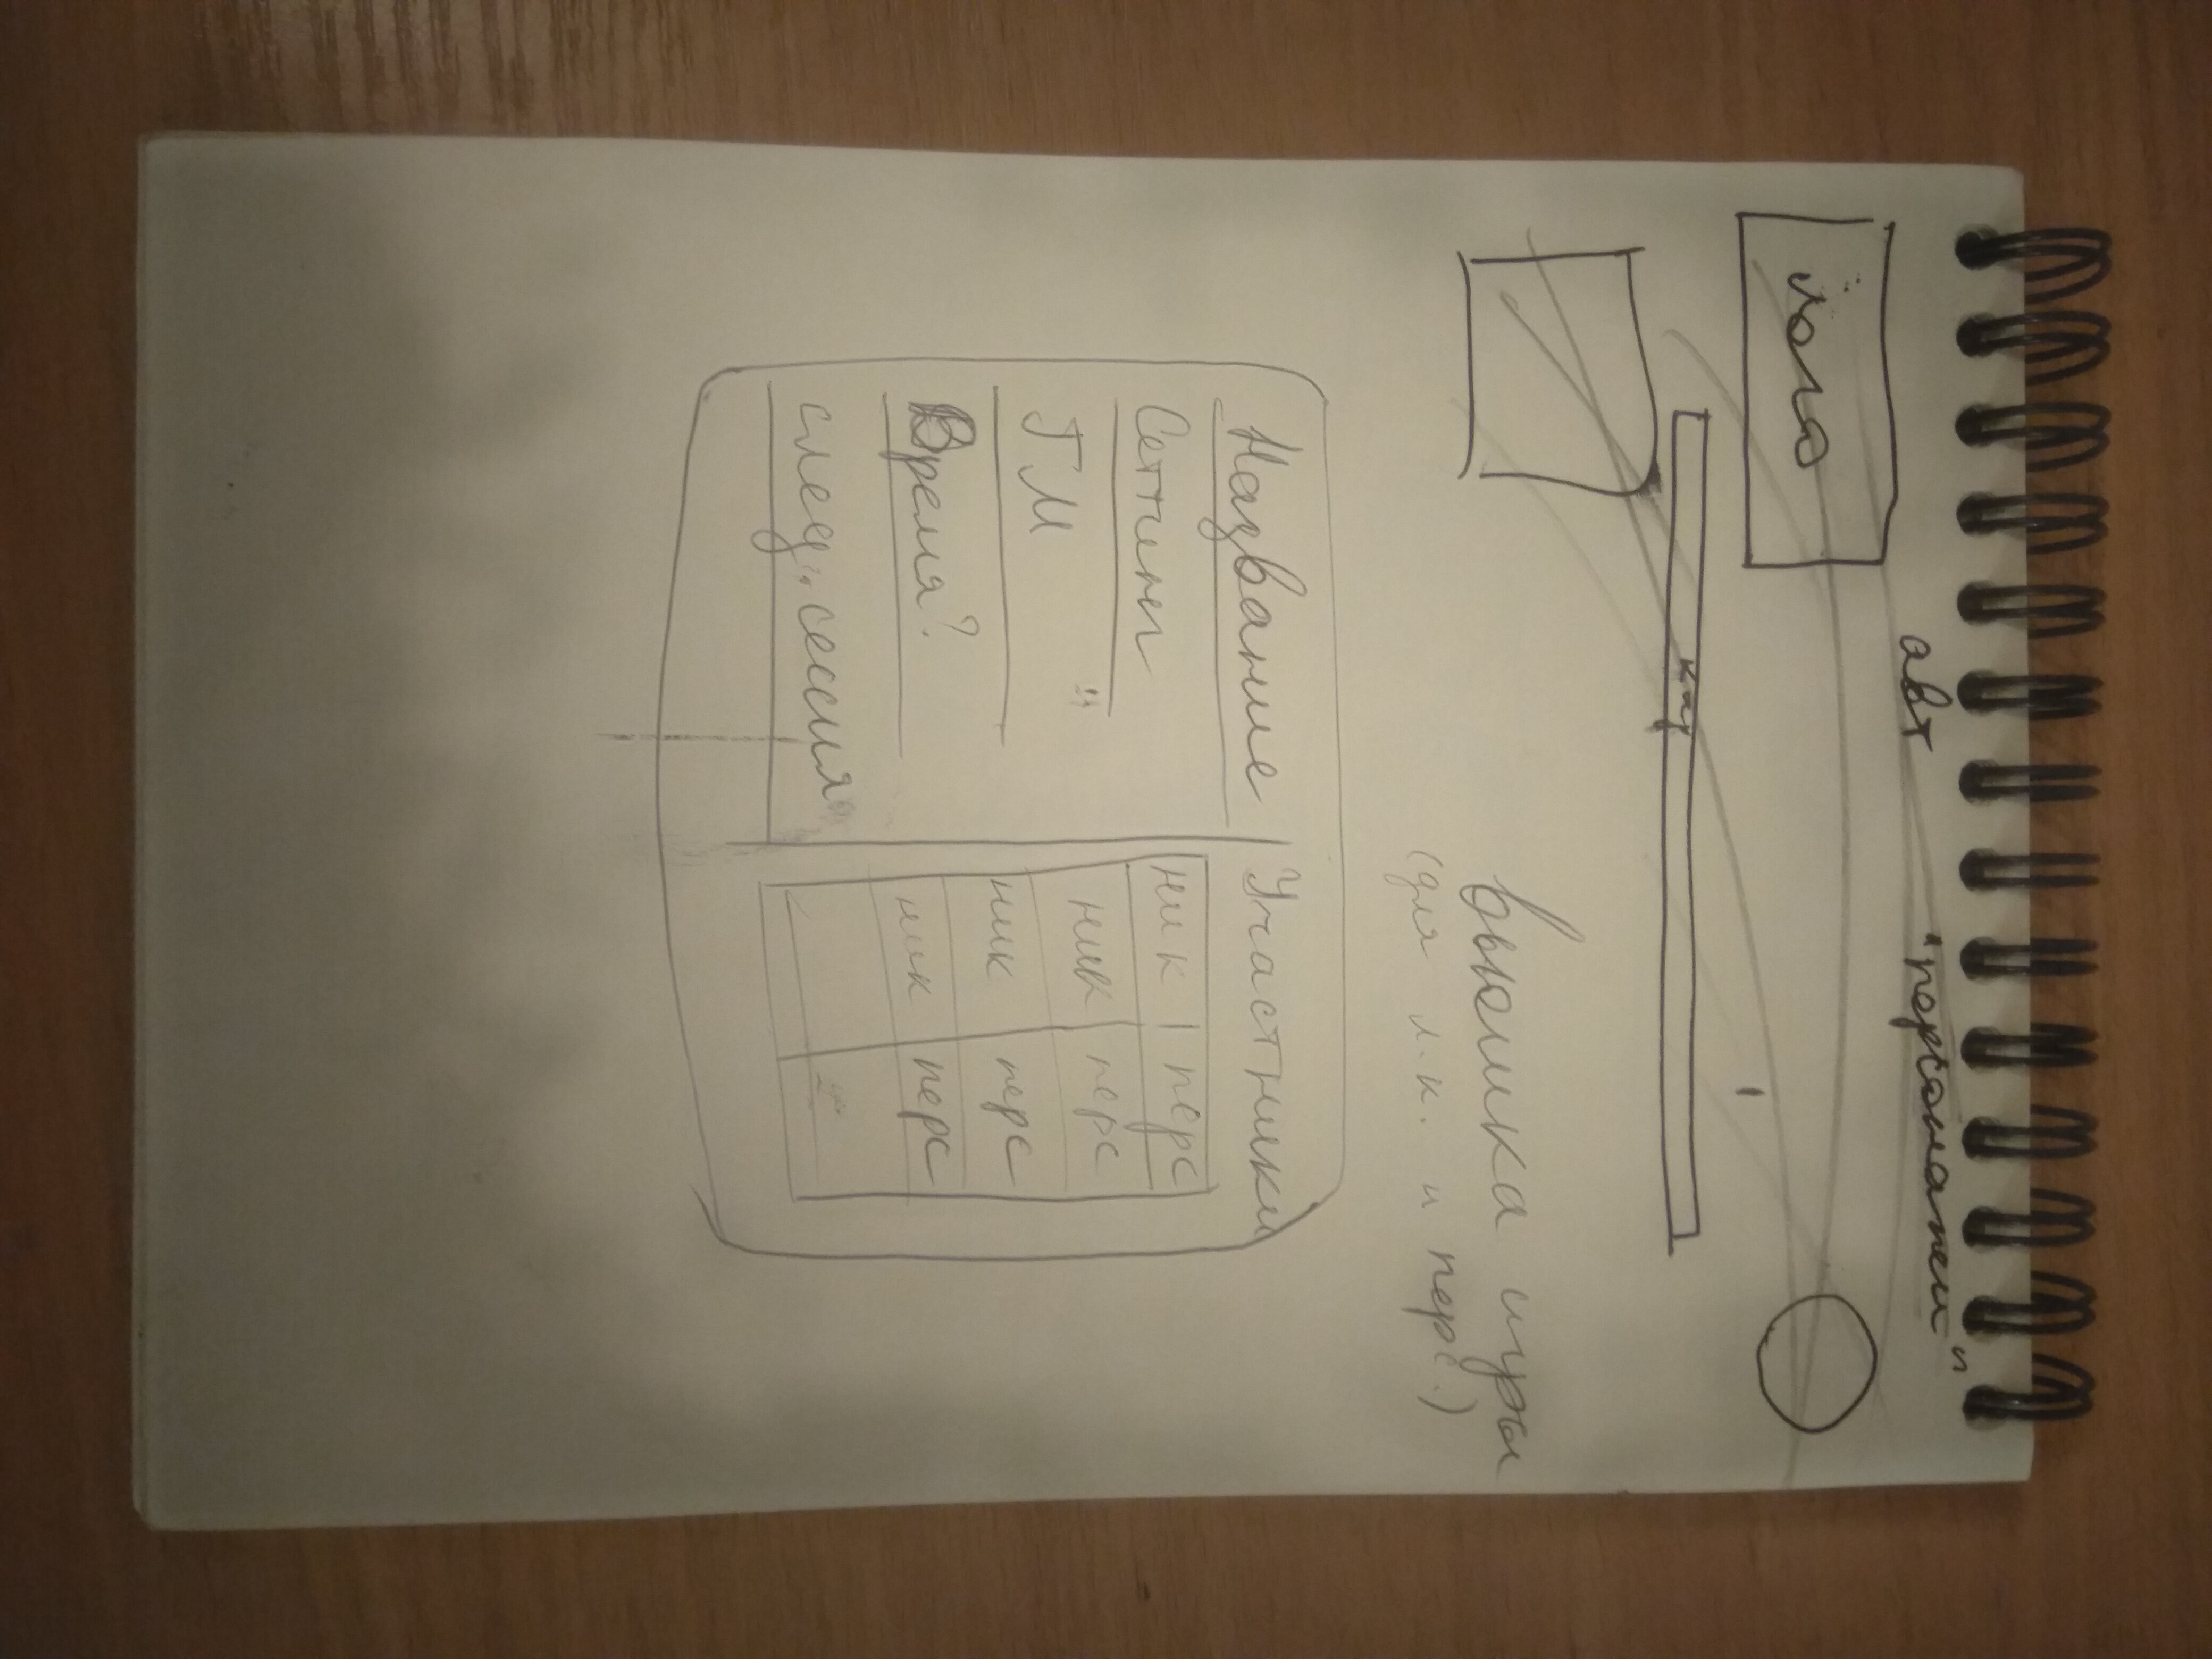 авт "персонажи"
лого
кар
вьюшка игры
(для л.к. и перс.)
Название
Сеттинг
ГМ
Время?
след. сессия
Участники
ник | перс
ник перс
ник перс
ник перс